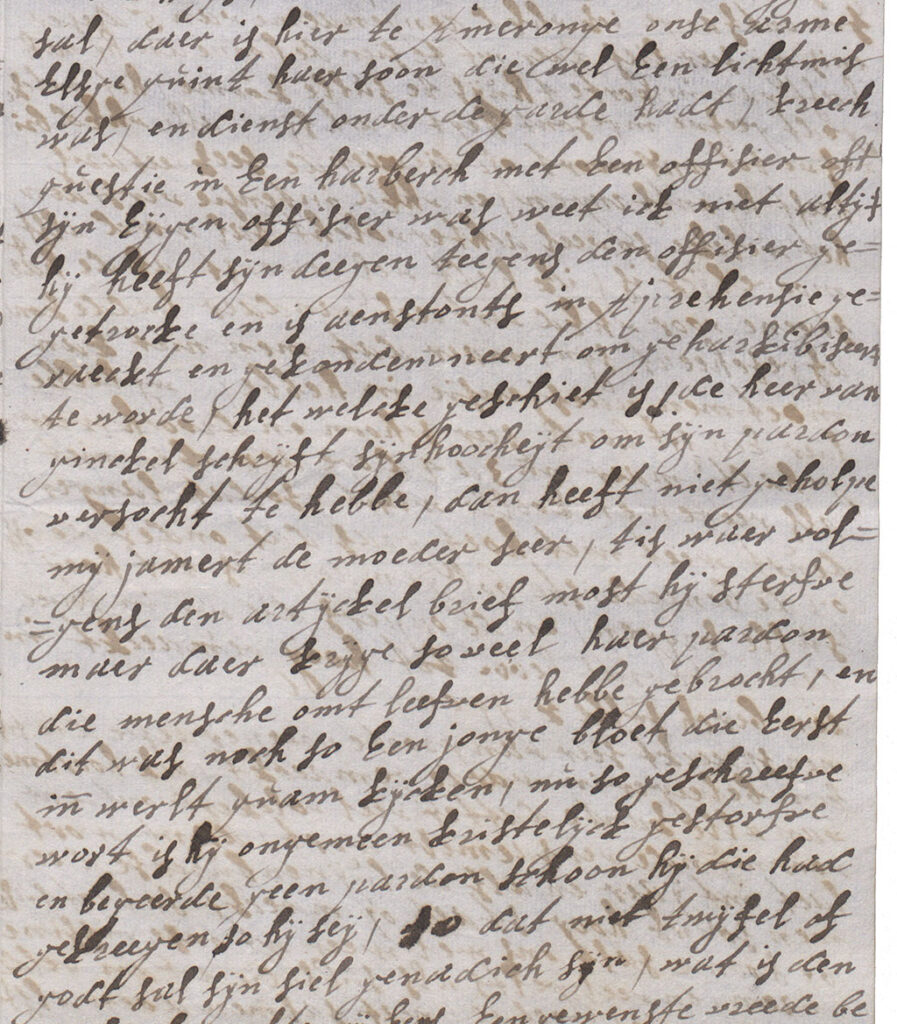 sal, daer is hier te Ameronge onse arme
Elsge quint haer soon die wel Een lichtmis
was, en dienst onder de garde hadt, kreech
questie in Een harberch met Een offisier oft
sÿn Eÿgen offisier was weet ick niet altÿt
hÿ heeft sÿn deegen teegens den offisier ge=
getrocke en is aenstonts in Aprehensie ge=
raeckt en gekondemneert om geharkibiseert
te worde, het welcke geschiet is, de heer van
ginckel schrÿft sÿn hoocheÿt om sÿn pardon
versocht te hebbe, dan heeft niet geholpe
mÿ jamert de moeder seer, tis waer vol=
=gens den artÿckel brief most hÿ sterfve
maer daer krÿge soveel haer pardon
die mensche omt leefven hebbe gebrocht, en
dit was noch so Een jonge bloet die Eerst
in werlt quam kÿcken, nu so geschreefve
wort is hÿ ongemeen kristelÿck gestorfve
en begeerde geen pardon schoon hÿ die had
gekreegen so hÿ seÿ, so dat niet twÿfel of
godt sal sÿn siel genadich sÿn, wat is den
Een gewenste vreede be